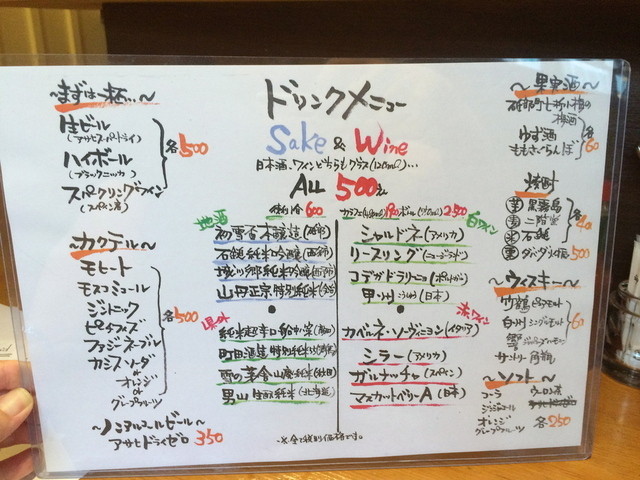 ～まずは一杯…～
生ビール
(アサヒスーパードライ)
ハイボール
(ブラックニッカ)
スパークリングワイン
(スペイン産)
各500
～カクテル～
モヒート
モスコミュール
ジントニック
ピーチフィズ
ファジーネーブル
カシス・ソーダ
オレンジ
グレープフルーツ
各500
～ノンアルコールビール～
アサヒドライゼロ 350
ドリンクメニュー
Sake & Wine
日本酒、ワインどちらもグラス(120ml)…
ALL 500
地酒
徳利1合 600
初雪盃 本醸造
石鎚 純米吟醸(西条)
城川郷 純米吟醸
山丹正宗 特別純米
県外
純米超辛口 船中八策(高知)
町田酒造 特別純米
雪の茅舎 山廃純米(秋田)
男山 生酛純米(北海道)
2500
白ワイン
シャルドネ(アメリカ)
リースリング
コデッサドラリーニョ
甲州 (日本)
赤ワイン
カベルネ・ソーヴィニヨン(イタリア)
シラー(アメリカ)
ガルナッチャ(スペイン)
マスカットベリーA(日本)
～果実酒～
砥部町七折小梅の
梅酒
ゆず酒
ももさくらんぼ
焼酎
黒霧島
二階堂
石鎚
ダバダ火振 500
～ウィスキー～
竹鶴 ピュアモルト
白州 シングルモルト
響 ジャパニーズハーモニー
サントリー 角瓶
～ソフト～
コーラ
ウーロン茶
ジンジャエール
オレンジ
グレープフルーツ
各250